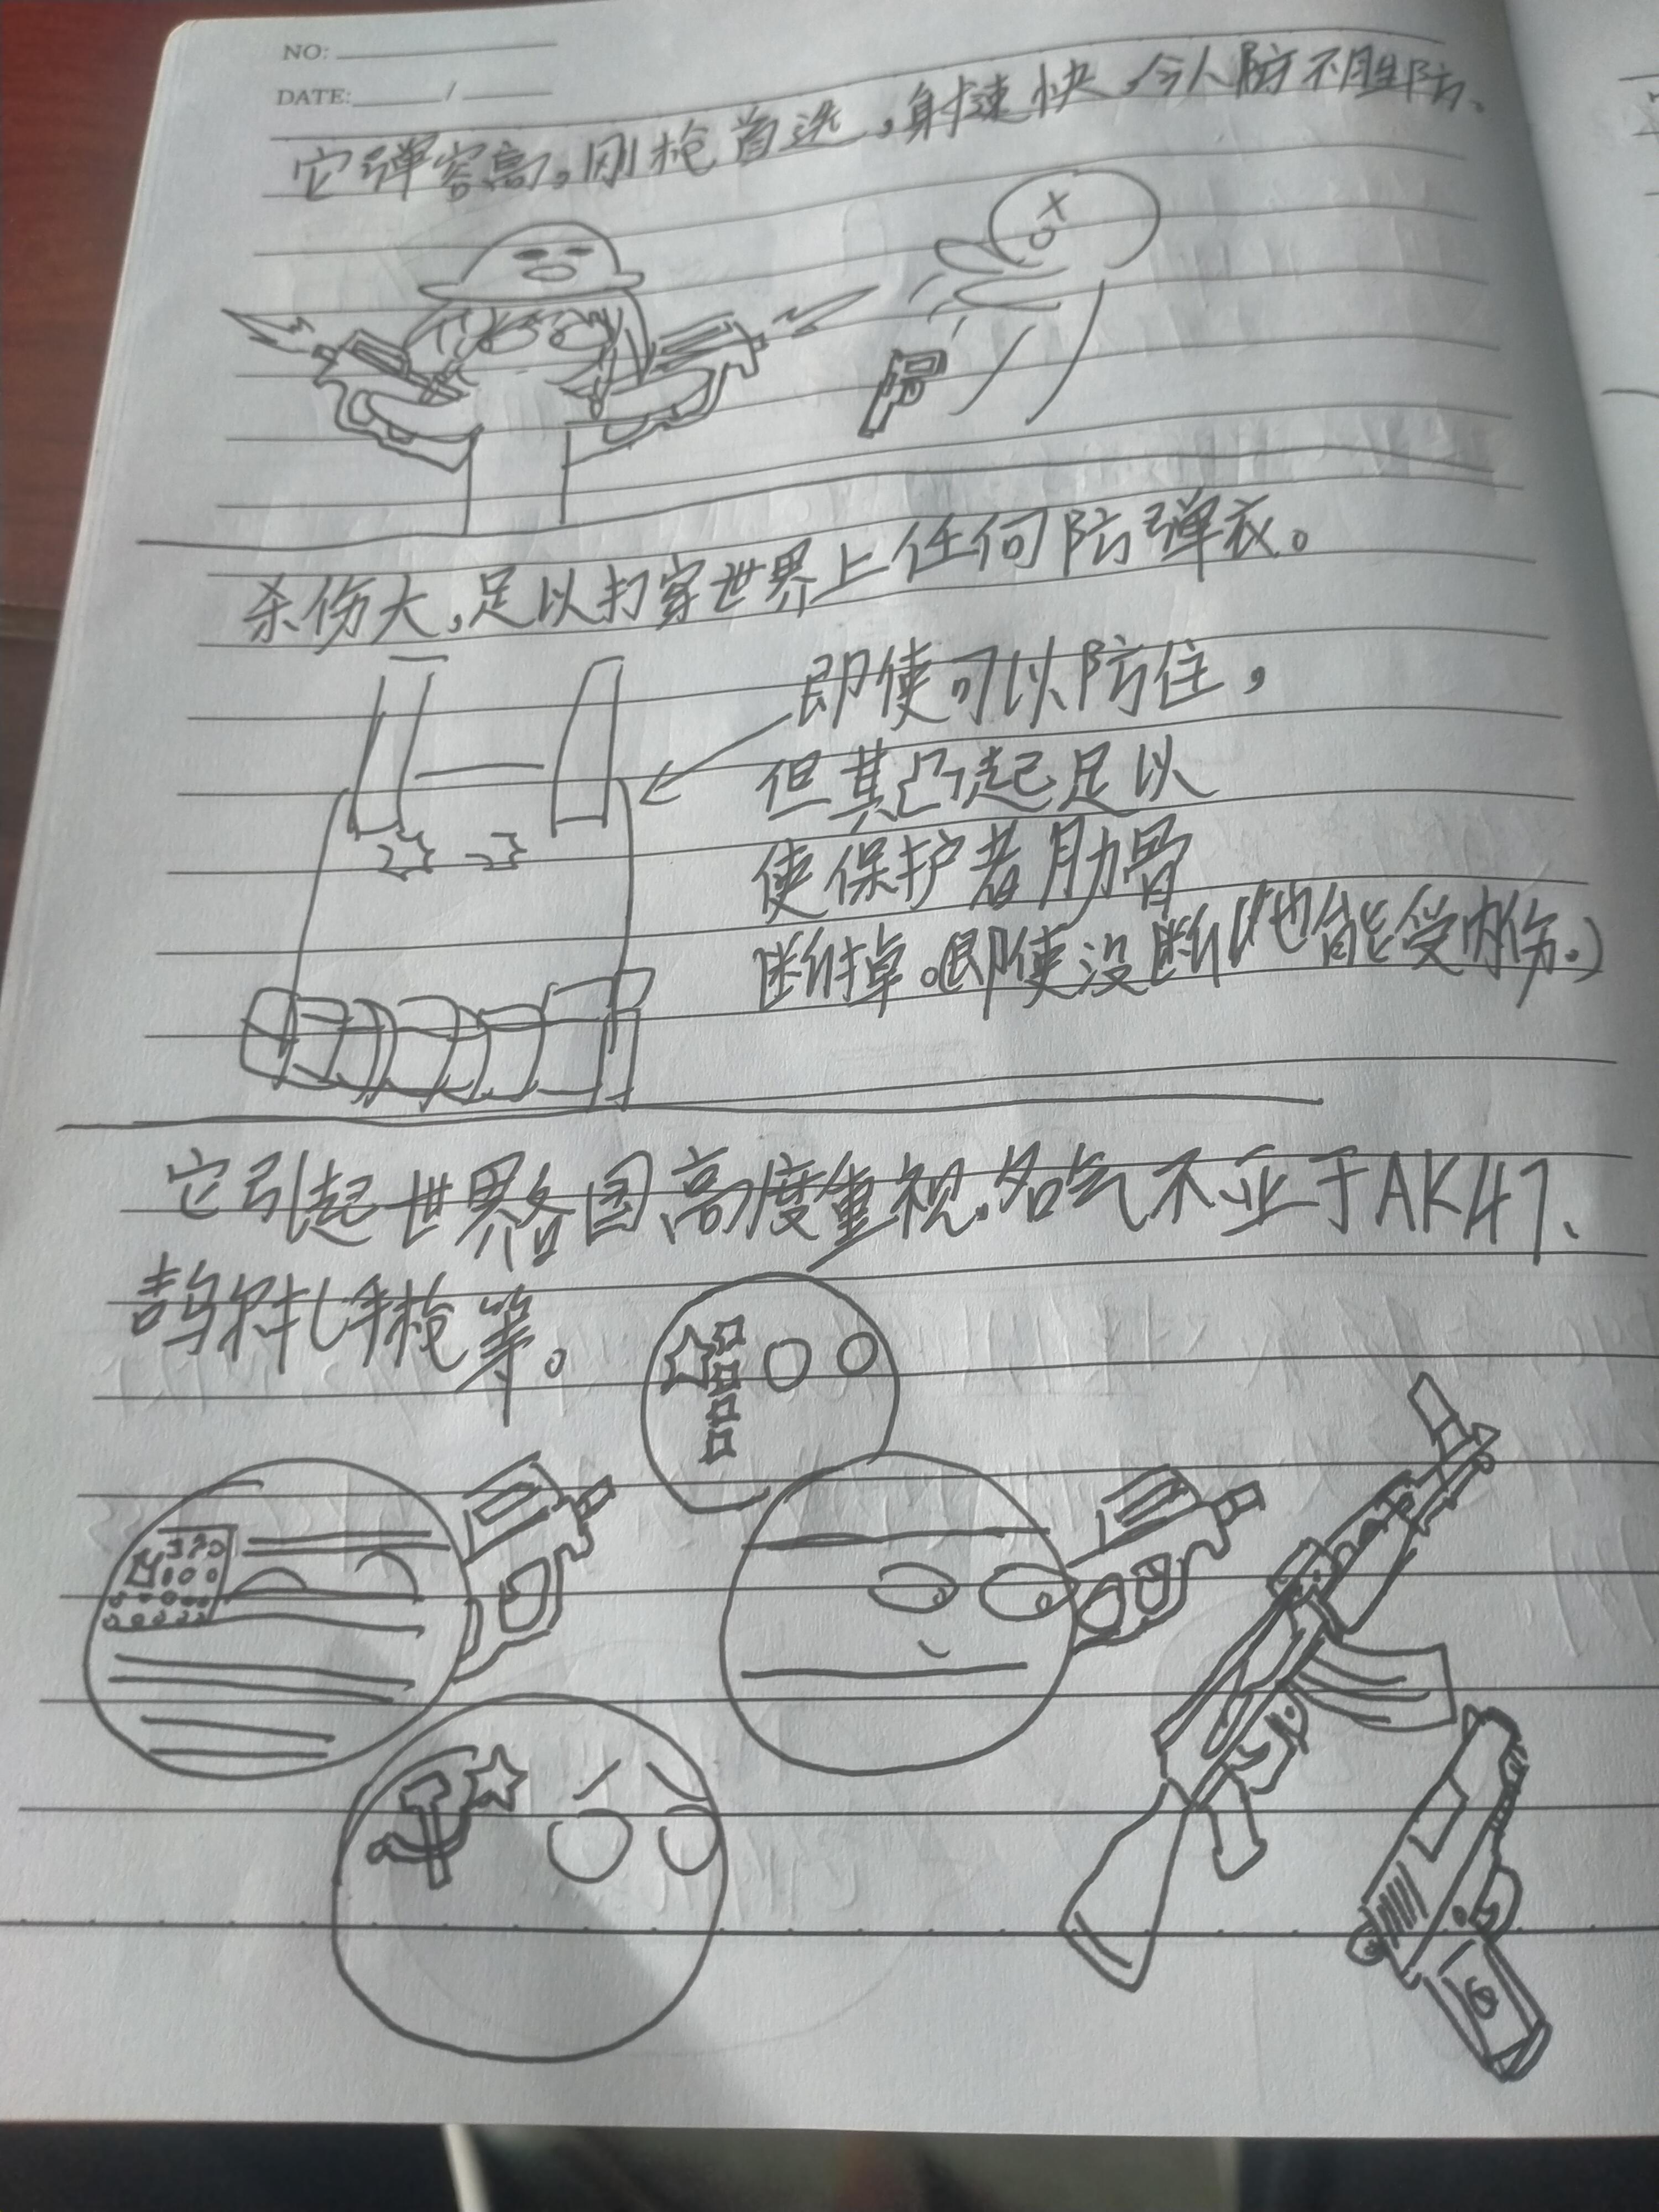 NO:
DATE: /
它弹容高,刚枪首选,射速快,令人防不胜防、
杀伤大,足以打穿世界上任何防弹衣。
即使可以防住,
但其凸起足以
使保护者肋骨
断掉。(即使没断,也能受内伤.)
它引起世界各国高度重视,名气不亚于AK47、
手枪等。